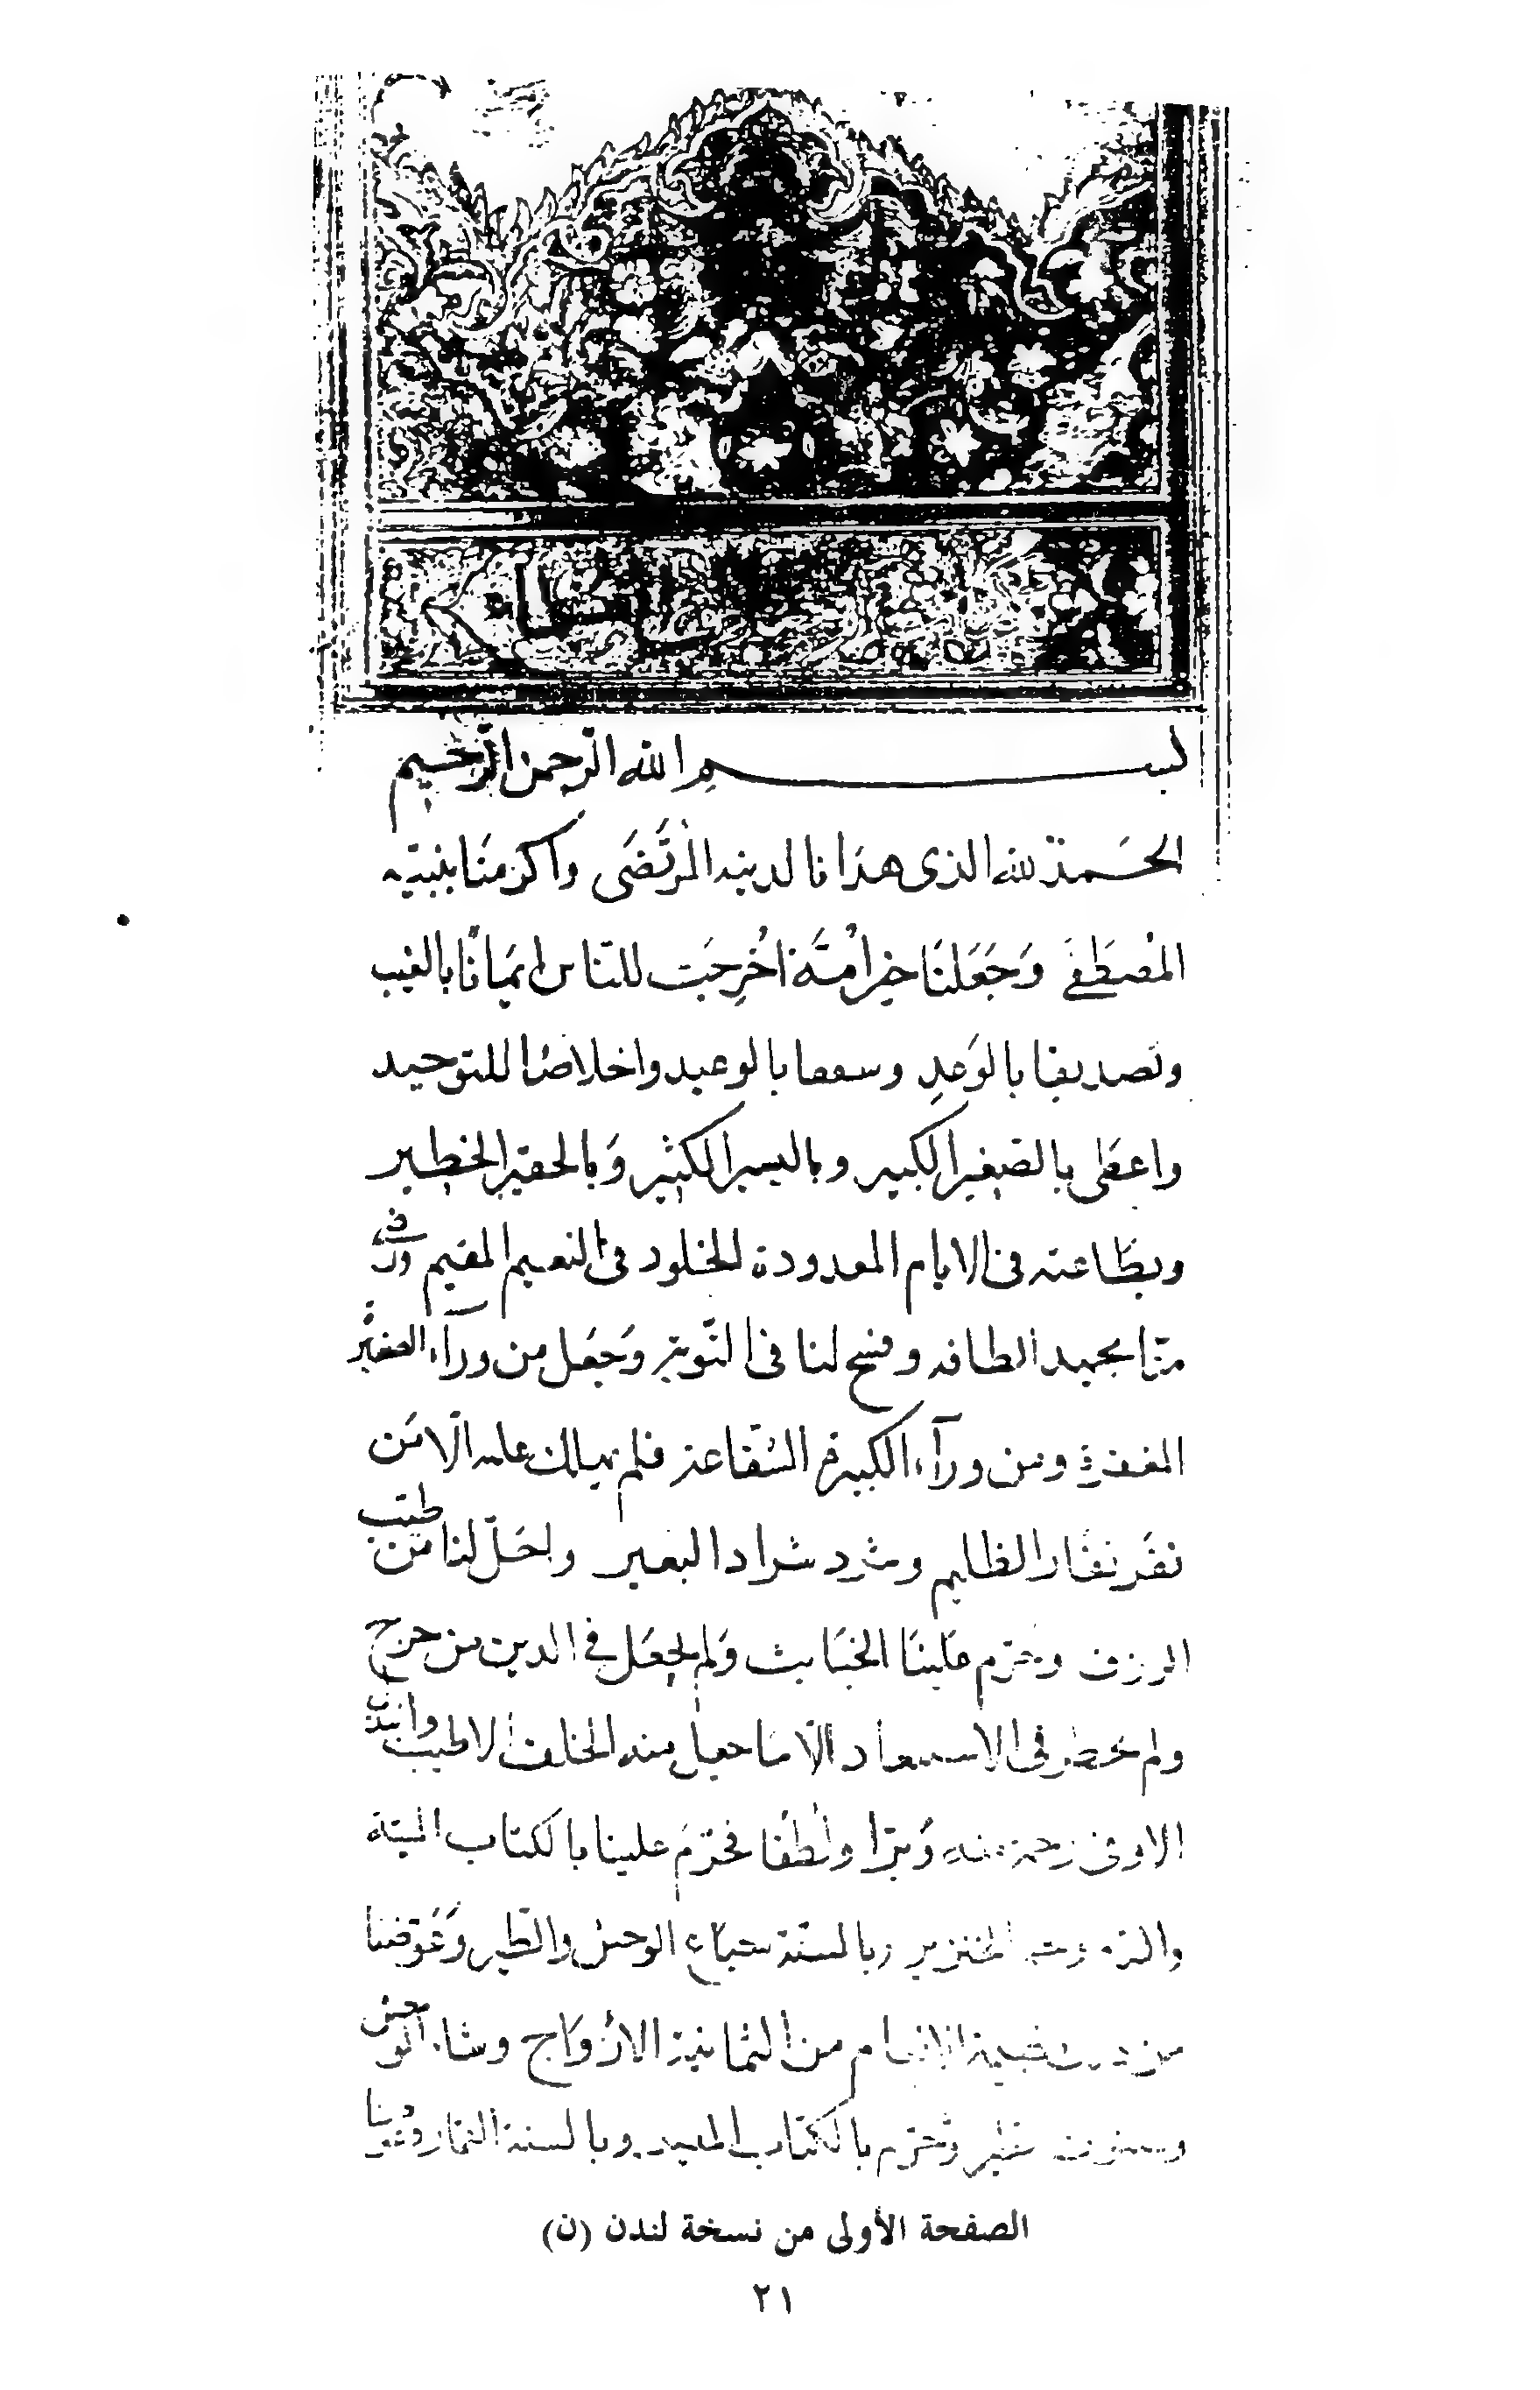 بسم الله الرحمن الرحيم
الحَمد لله الذى هدَانا لدينه المُرتَضَى وأكرمنَا بنبيّه
المُصطَفَى وَجَعَلنَا خير أُمَّة أُخرِجَت للنّاس ايمَانًا بالغيب
وتَصديقا بالوَعدِ وسمعا بالوعيد واخلاصًا للتوحيد
واعطَى بالصّغير الكبير وباليسير الكثير وَبالحقير الخطير
وبطَاعته فى الايام المعدودة للخلود فى النعيم المقيم ورضى
منّا بجهد الطاقه وفسح لنا فى التّوبة وَجَعَل من ورآء الصغير
المغفرة ومن ورآء الكبيرة الشّفاعة فلم يهلك عليه الّا مَن
نفَر نفَار الظليم وشرد شراد البعير واحَلّ لنا من طيّب
الرزق وحرّم عَلينَا الخبَايث وَلم يجعَل فى الدين من حرج
ولم يحظر فى الاستعباد الّا مَا جعل منه الخلف الاطيب والبدل
الاوفى رحمة منه وَبرّا ولُطفًا فحرّمَ علينا بالكتاب الميتة
والدم ولحم الخنزير وبالسنّة سباع الوحش والطّير وَعَوّضنا
من ذلك بهيمة الانعام من الثمانية الازوَاج وسائر الوحش
وصنوف الطير وحَرّم بالكتاب الميسر وبالسنة القمار وعوضنا
الصفحة الأولى من نسخة لندن (ن)
٢١